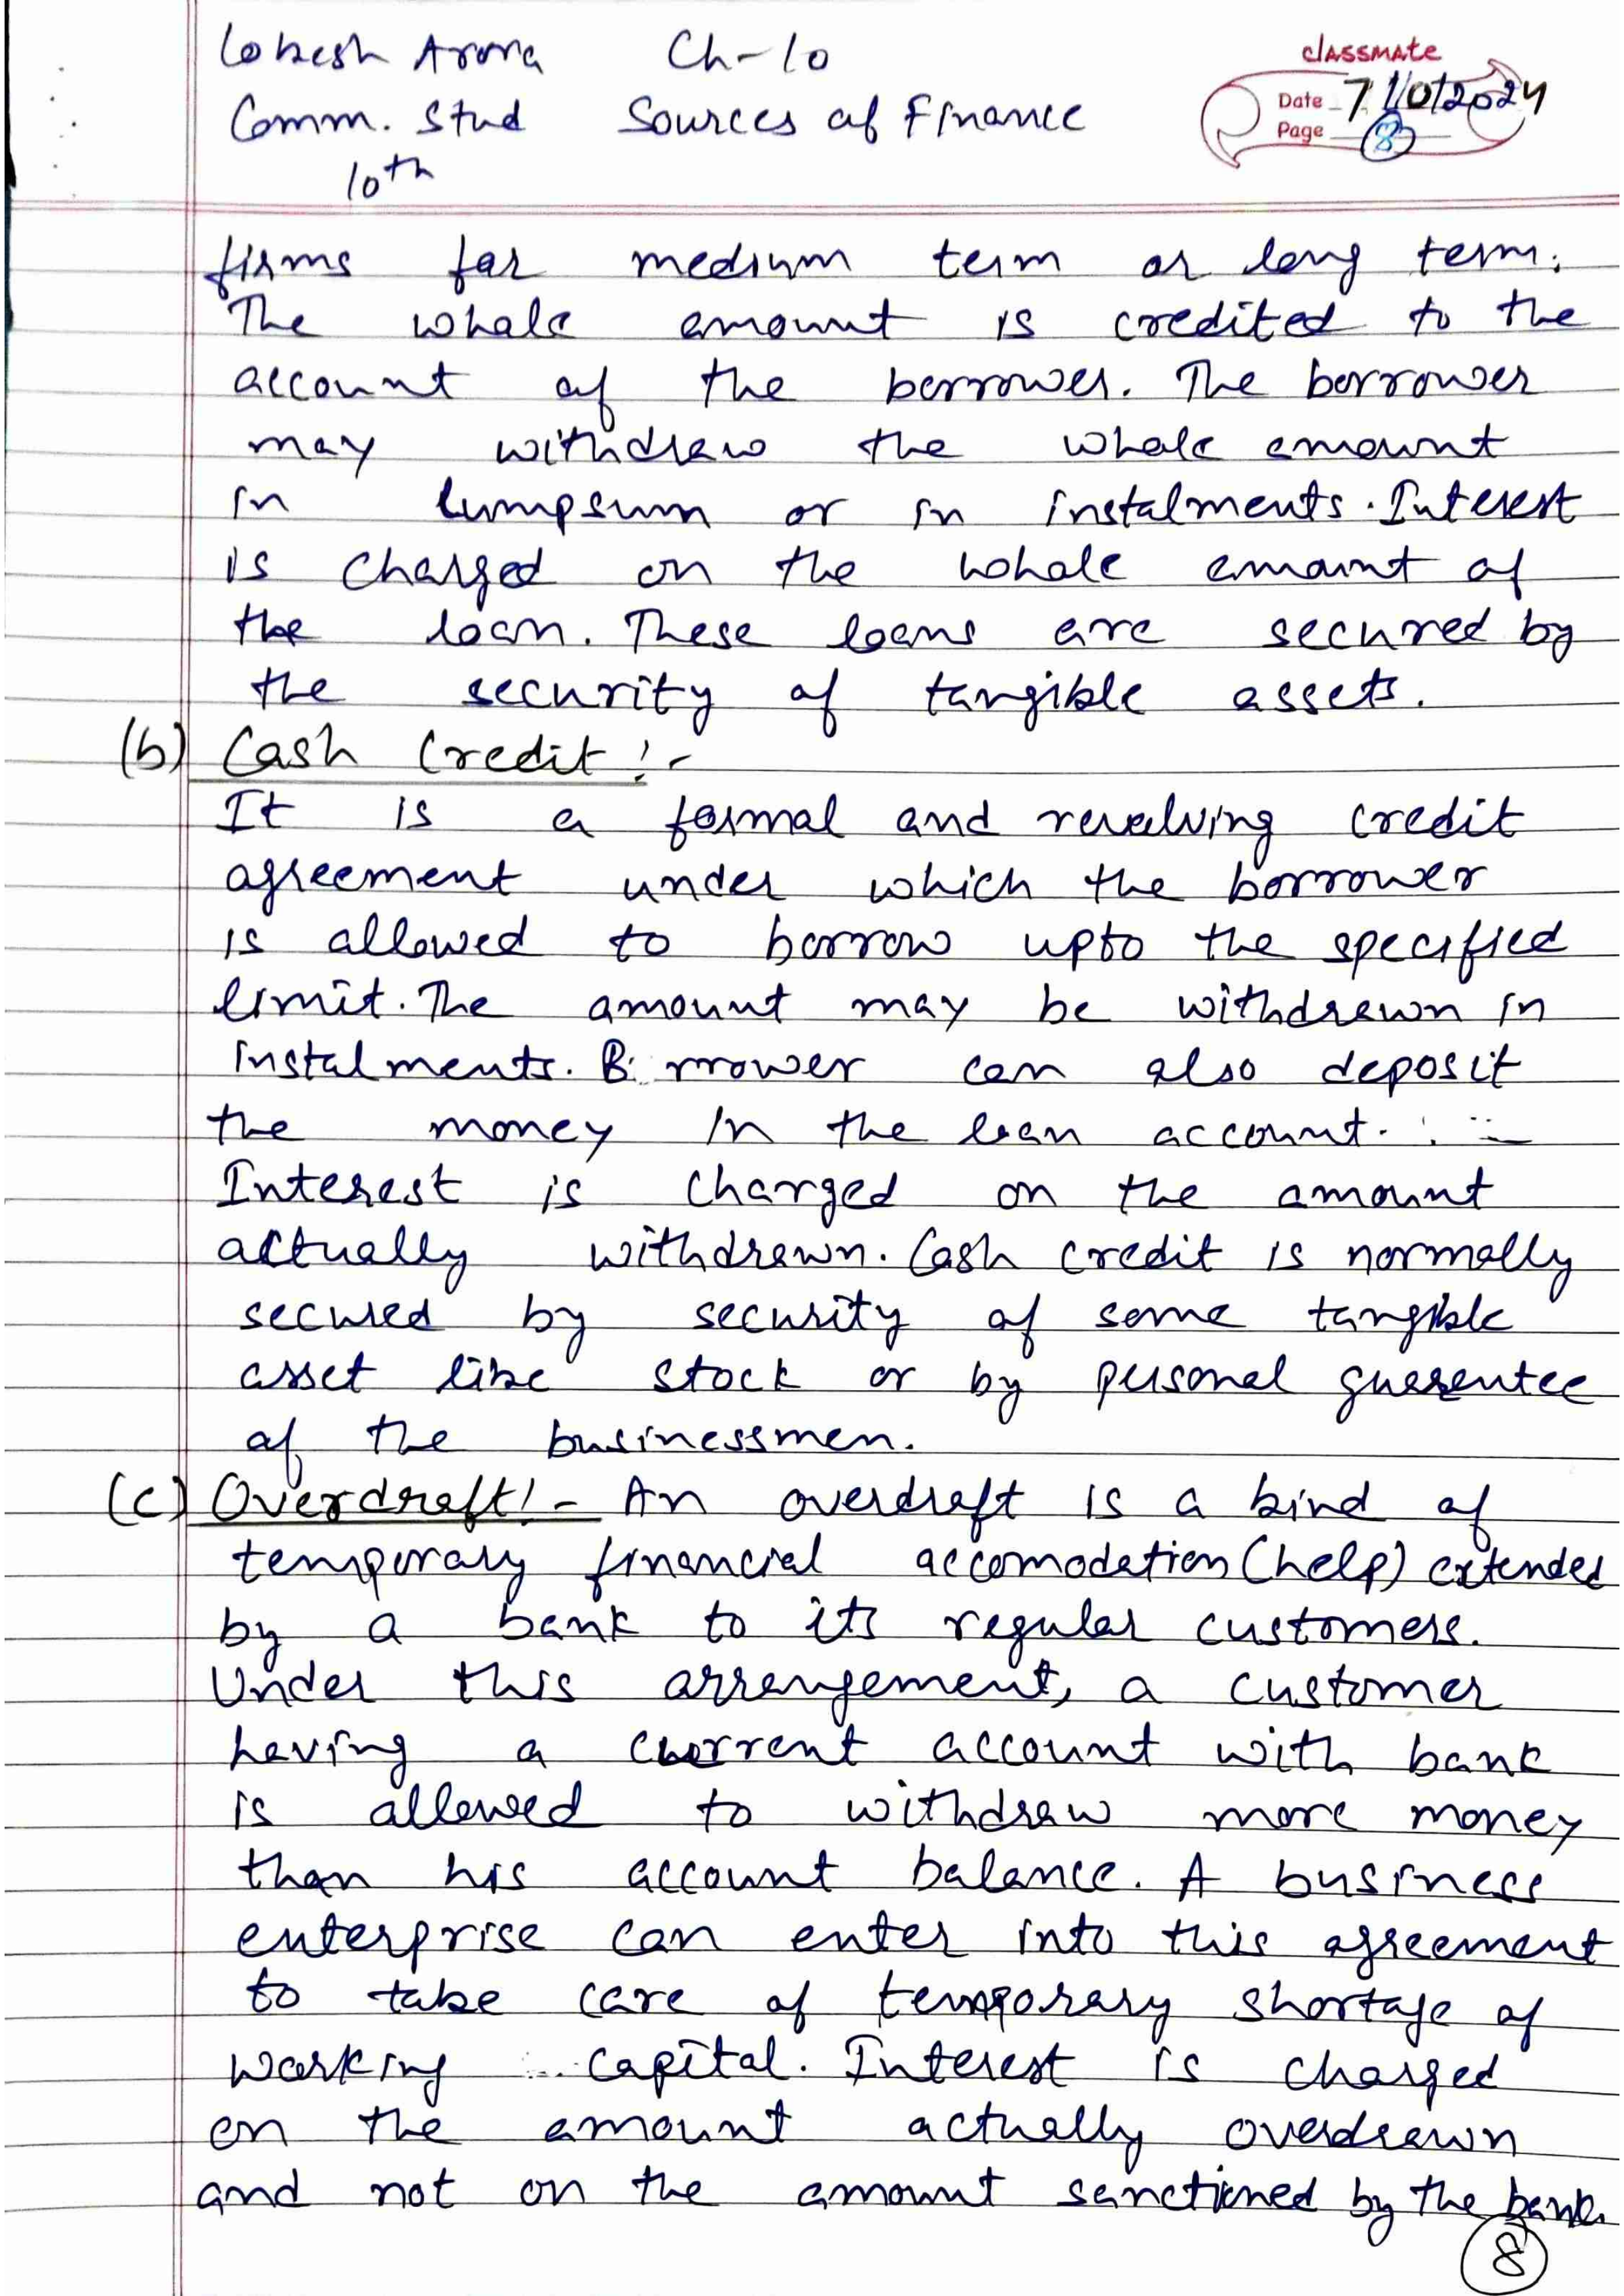 Lokesh Arora Ch-10
classmate
Comm. Stud Sources of Finance
Date 7/10/2024
Page 8
10th
firms for medium term or long term.
The whole amount is credited to the
account of the borrower. The borrower
may withdraw the whole amount
in lumpsum or in instalments. Interest
is charged on the whole amount of
the loan. These loans are secured by
the security of tangible assets.
(b) Cash Credit :-
It is a formal and revolving credit
agreement under which the borrower
is allowed to borrow upto the specified
limit. The amount may be withdrawn in
instalments. Borrower can also deposit
the money in the loan account.
Interest is charged on the amount
actually withdrawn. Cash credit is normally
secured by security of some tangible
asset like stock or by personal guarantee
of the businessmen.
(c) Overdraft :- An overdraft is a kind of
temporary financial accomodation (help) extended
by a bank to its regular customers.
Under this arrangement, a customer
having a current account with bank
is allowed to withdraw more money
than his account balance. A business
enterprise can enter into this agreement
to take care of temporary shortage of
working capital. Interest is charged
on the amount actually overdrawn
and not on the amount sanctioned by the bank.
8